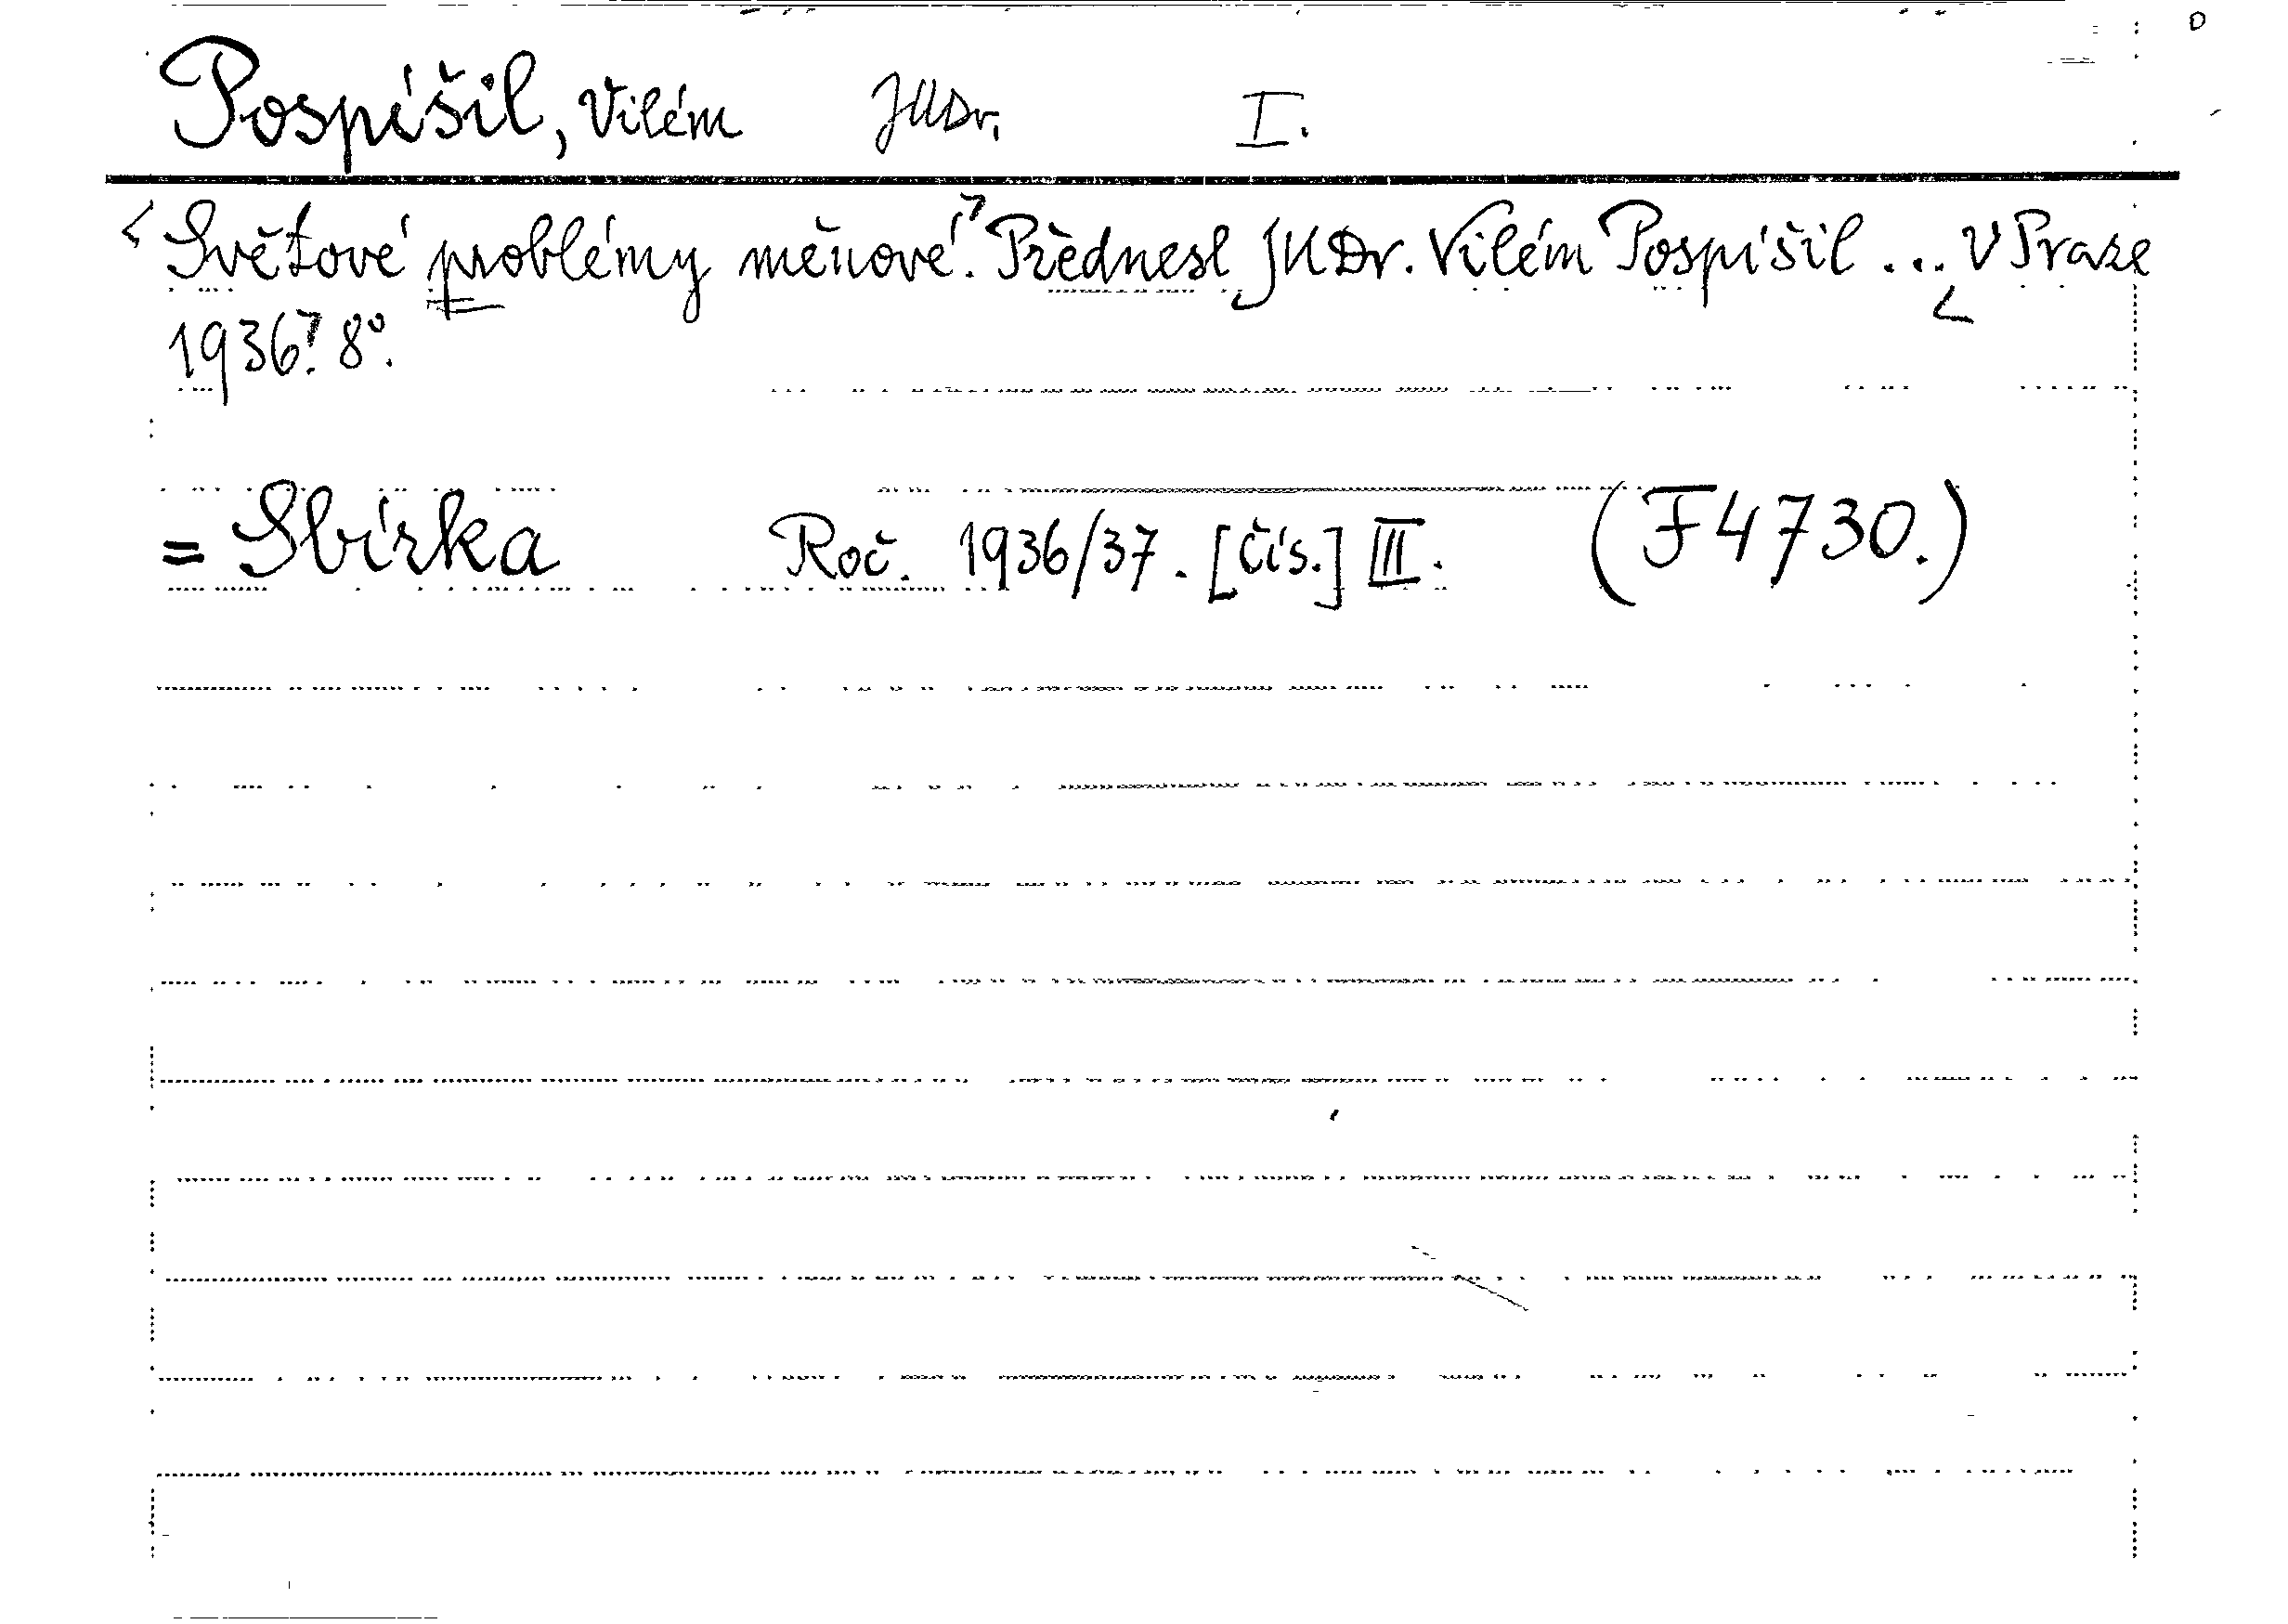 Pospíšil, Vilém JUDr. I.
<Světové problémy měnové.> Přednesl JUDr. Vilém Pospíšil ... <V Praze
1936>. 8°.
= Sbírka Roč. 1936/37. [Čís.] III. (F 4730.)